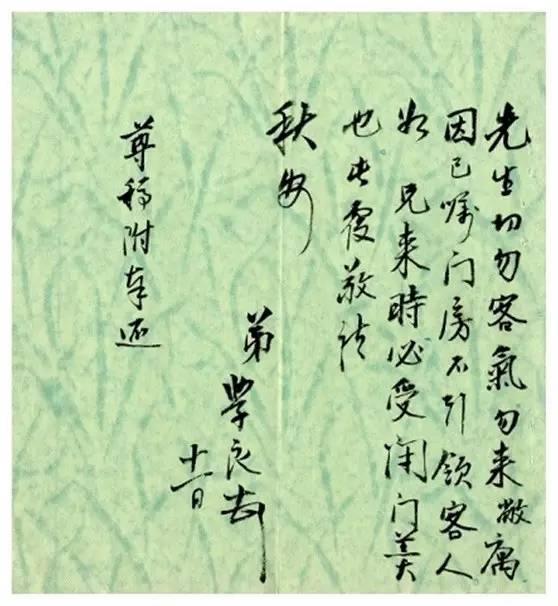 先生切勿客氣勿来敝寓
因已嘱门房不引领客人
如 兄来時必受闭门羹
也此覆敬请
秋安
弟 学良 拜
十一日
尊稿附奉还